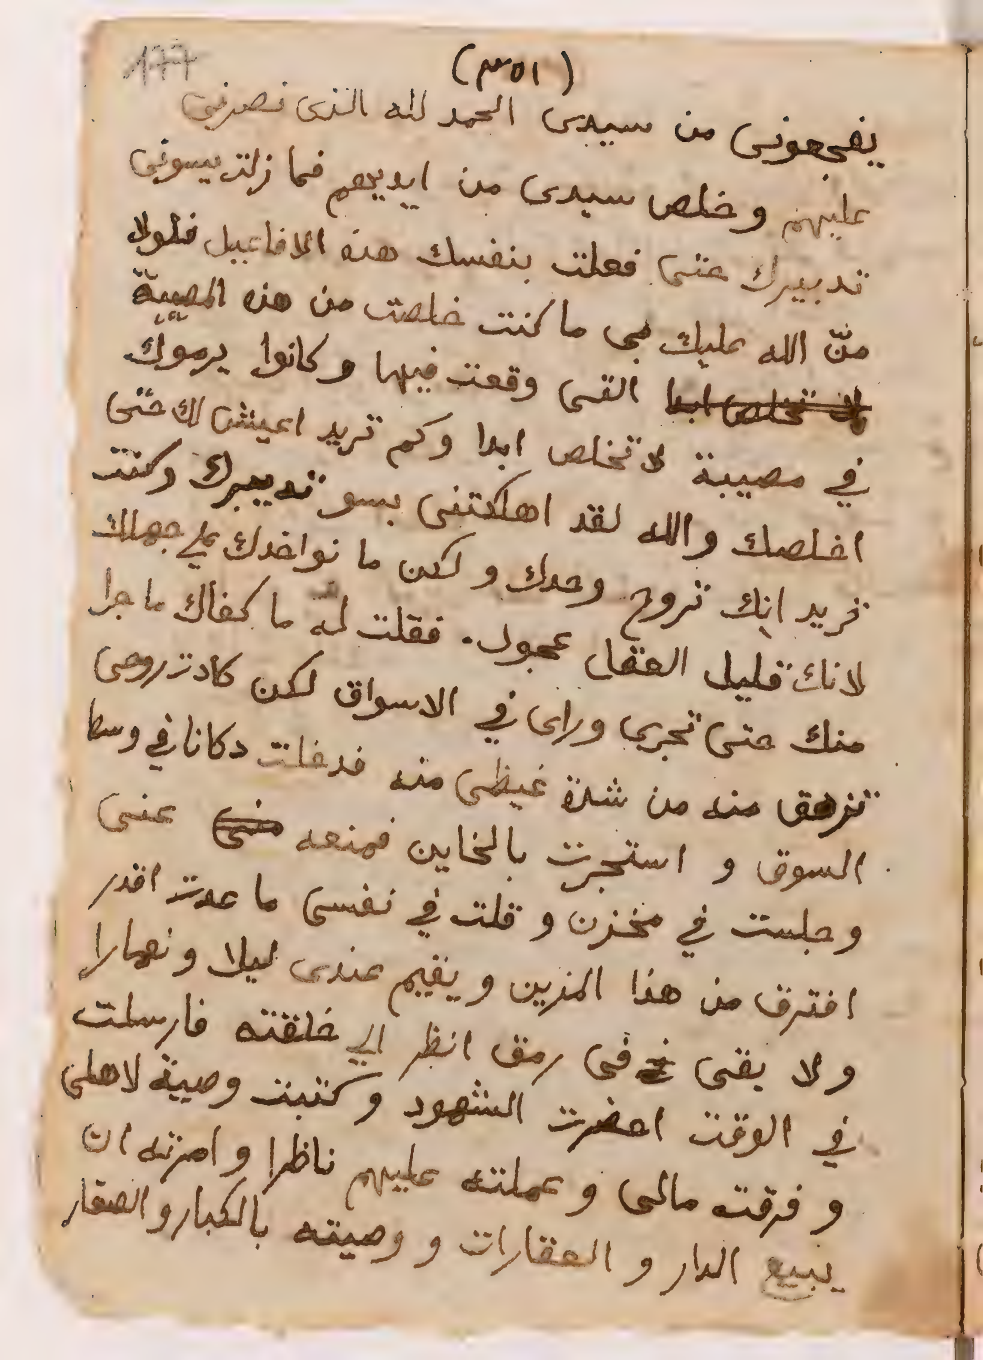 177
(٣٥١)
يفجعونى من سيدى الحمد لله الذى نصرنى
عليهم وخلص سيدى من ايديهم فما زلت بسونى
تدبيرك حتى فعلت بنفسك هذه الافاعيل فلولا
منّ الله عليك بى ما كنت خلصت من هذه المصيبة
لا تخلص ابدا التى وقعت فيها وكانوا يرموك
في مصيبة لا تخلص ابدا وكم تريد اعيش لك حتى
اخلصك والله لقد اهلكتنى بسو تدبيرك وكنت
تريد انك تروح وحدك ولكن ما نواخدك على جهلك
لانك قليل العقل عجول. فقلت له ما كفاك ما جرا
منك حتى تجرى وراى في الاسواق لكن كادت روحى
تزهق منه من شدة غيظى منه فدخلت دكانا في وسط
السوق و استجرت بالخاين فمنعه منى عنى
وجلست في مخزن و قلت في نفسى ما عدت اقدر
افترق من هذا المزين ويقيم عندى ليلا ونهارا
ولا بقى فى رمق انظر الي خلقته فارسلت
في الوقت احضرت الشهود وكتبت وصية لاهلى
و فرقته مالى و عملته عليهم ناظرا و امرته ان
يبيع الدار و العقارات و وصيته بالكبار والصغار